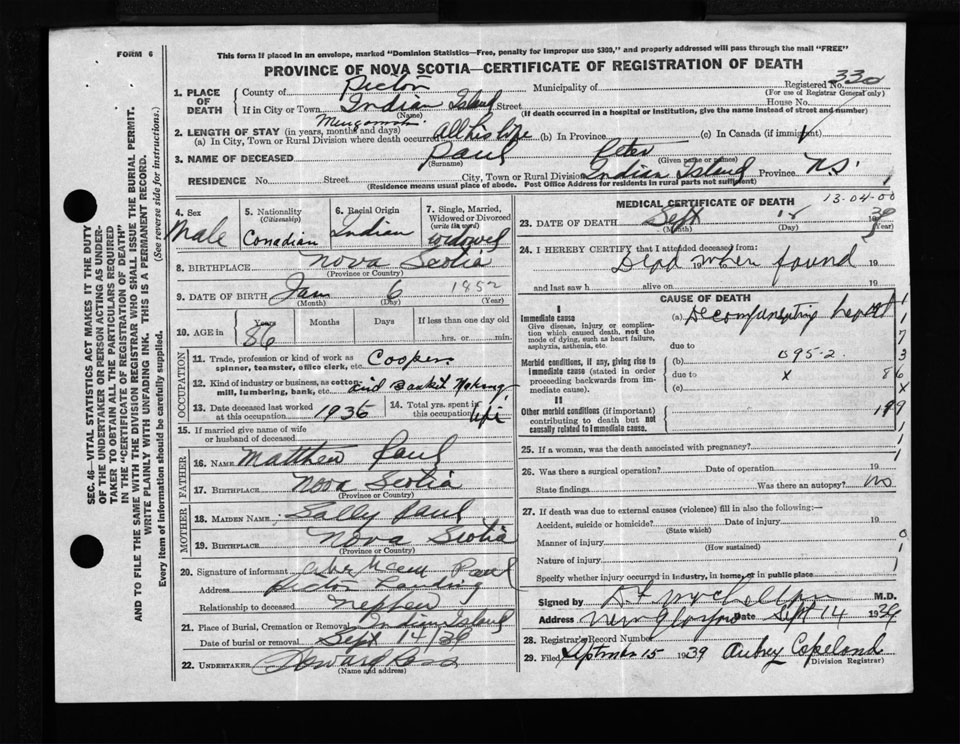 FORM 6
This form if placed in an envelope, marked "Dominion Statistics—Free, penalty for improper use $300," and properly addressed will pass through the mail "FREE"
PROVINCE OF NOVA SCOTIA—CERTIFICATE OF REGISTRATION OF DEATH
SEC. 46—VITAL STATISTICS ACT MAKES IT THE DUTY
OF THE UNDERTAKER OR PERSON ACTING AS UNDER-
TAKER TO OBTAIN ALL THE PARTICULARS REQUIRED
IN THE "CERTIFICATE OF REGISTRATION OF DEATH"
AND TO FILE THE SAME WITH THE DIVISION REGISTRAR WHO SHALL ISSUE THE BURIAL PERMIT.
WRITE PLAINLY WITH UNFADING INK. THIS IS A PERMANENT RECORD.
Every item of information should be carefully supplied. (See reverse side for instructions.)
1. PLACE OF DEATH
County of Pictou Municipality of Registered No. 330
(For use of Registrar General only)
If in City or Town Indian Island Street House No.
(Name) (If death occurred in a hospital or institution, give the name instead of street and number)
2. LENGTH OF STAY (in years, months and days)
(a) In City, Town or Rural Division where death occurred All his life (b) In Province (c) In Canada (if immigrant)
3. NAME OF DECEASED Paul Peter
(Surname) (Given name or names)
RESIDENCE No. Street City, Town or Rural Division Indian Island Province N.S.
(Residence means usual place of abode. Post Office Address for residents in rural parts not sufficient)
4. Sex Male
5. Nationality (Citizenship) Canadian
6. Racial Origin Indian
7. Single, Married, Widowed or Divorced (write the word) Widowed
8. BIRTHPLACE Nova Scotia
(Province or Country)
9. DATE OF BIRTH Jan 6 1852
(Month) (Day) (Year)
10. AGE in Years Months Days If less than one day old
86 hrs. or min.
OCCUPATION
11. Trade, profession or kind of work as spinner, teamster, office clerk, etc. Cooper
12. Kind of industry or business, as cotton mill, lumbering, bank, etc. and Basket Making
13. Date deceased last worked at this occupation 1936
14. Total yrs. spent in this occupation life
15. If married give name of wife or husband of deceased
FATHER
16. NAME Matthew Paul
17. BIRTHPLACE Nova Scotia
(Province or Country)
MOTHER
18. MAIDEN NAME Sally Paul
19. BIRTHPLACE Nova Scotia
(Province or Country)
20. Signature of informant Paul
Address Pictou Landing
Relationship to deceased Nephew
21. Place of Burial, Cremation or Removal Indian Island
Date of burial or removal Sept 14/39
22. UNDERTAKER Howard Ross
(Name and address)
MEDICAL CERTIFICATE OF DEATH
13-04-00
23. DATE OF DEATH Sept 39
(Month) (Day) (Year)
24. I HEREBY CERTIFY that I attended deceased from:
Dead when found 19
and last saw h alive on 19
CAUSE OF DEATH
I
Immediate cause (a) Decompensating heart
Give disease, injury or complication which caused death, not the mode of dying, such as heart failure, asphyxia, asthenia, etc.
due to
Morbid conditions, if any, giving rise to immediate cause (stated in order proceeding backwards from immediate cause).
(b) 095-2
due to x
(c)
II
Other morbid conditions (important) contributing to death but not causally related to immediate cause.
199
1
7
3
86
x
25. If a woman, was the death associated with pregnancy?
26. Was there a surgical operation? Date of operation 19
State findings Was there an autopsy? No
27. If death was due to external causes (violence) fill in also the following:—
Accident, suicide or homicide? Date of injury 19
(State which)
Manner of injury
(How sustained)
Nature of injury
Specify whether injury occurred in industry, in home, or in public place
Signed by M.D.
Address New Glasgow Date Sept 14 1939
28. Registrar's Record Number
29. Filed 15 1939 Aubrey Copeland
(Division Registrar)